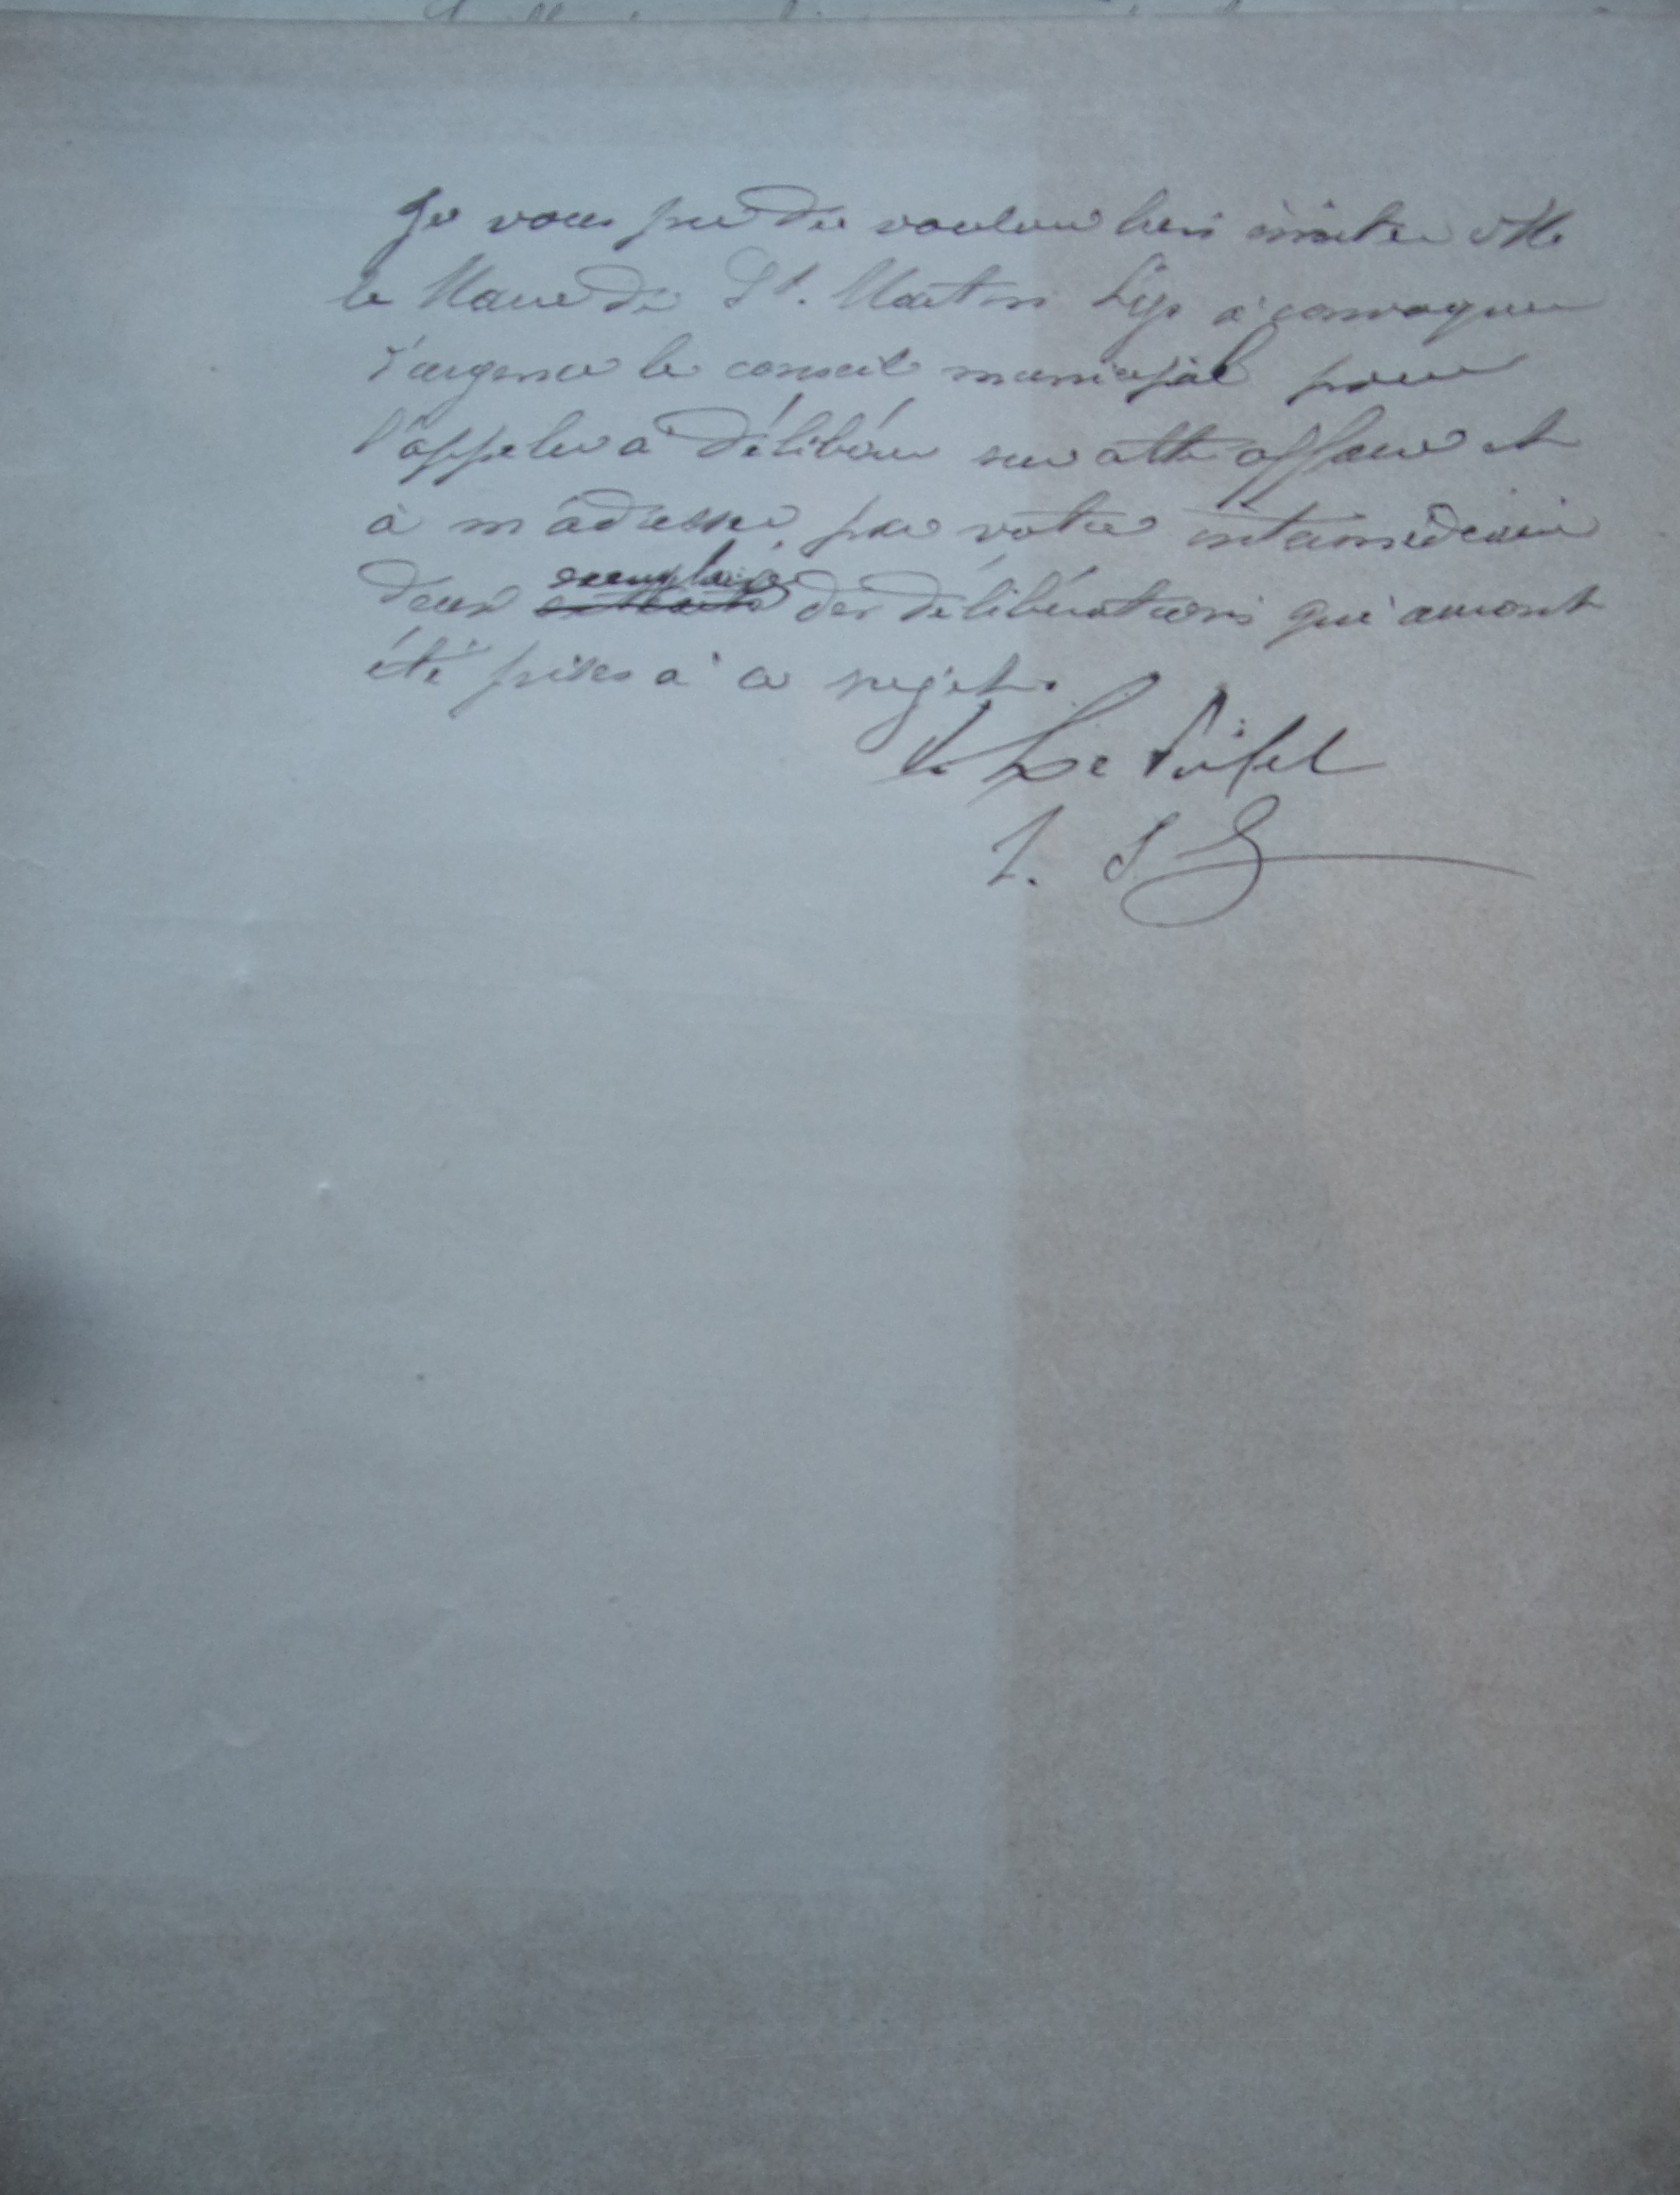 Je vous prie de vouloir bien inviter M.
le Maire de St. Martin Lys à convoquer
d'urgence le conseil municipal pour
l'appeler à délibérer sur cette affaire et
à m'adresser, par votre intermédiaire
exemplaires
deux extraits des délibérations qui auront
été prises à ce sujet.
Le Préfet